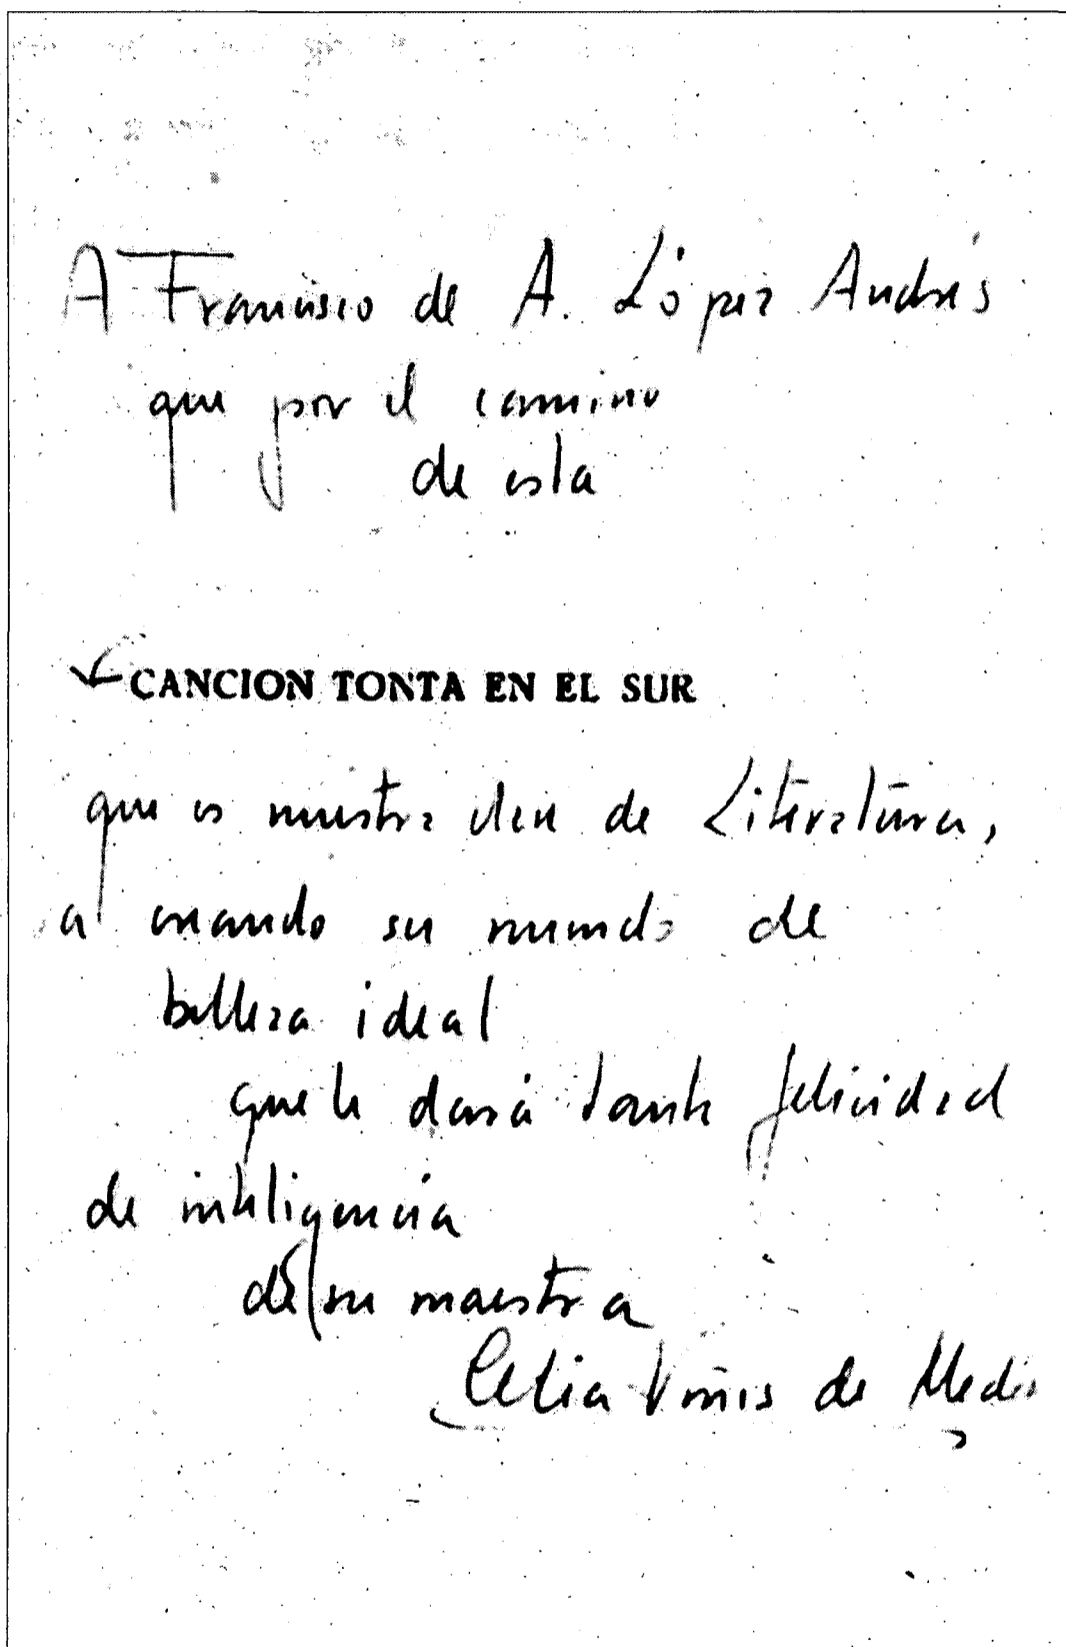 A Francisco de A. López Andrés
que por el camino
de esta
CANCION TONTA EN EL SUR
que es nuestra clase de Literatura,
va creando su mundo de
belleza ideal
que le dará tanta felicidad
de inteligencia
de su maestra
Celia Viñas de Medi